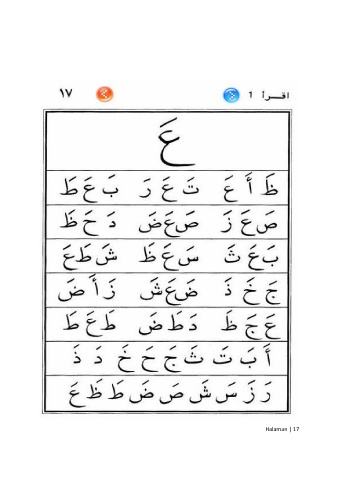 اقرأ ١ ١٧
عَ
ظَ أَ عَ تَ عَ رَ بَ عَ طَ
صَ عَ زَ صَ عَ ضَ دَ حَ ظَ
بَ عَ ثَ سَ عَ ظَ شَ طَ عَ
جَ خَ ذَ ضَ عَ شَ زَ أَ ضَ
عَ جَ ظَ دَ طَ ضَ طَ عَ طَ
أَ بَ تَ ثَ جَ حَ خَ دَ ذَ
رَ زَ سَ شَ صَ ضَ طَ ظَ عَ
Halaman | 17